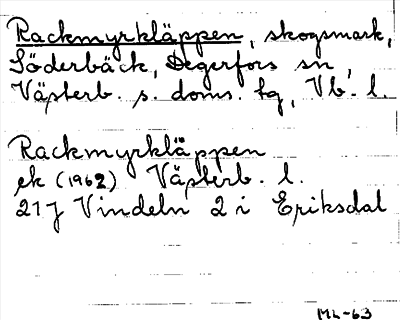 Rackmyrkläppen, skogsmark,
Söderbäck, Degerfors sn,
Västerb. s. doms. hg, Vb. l.
Rackmyrkläppen
ek (1962) Västerb. l.
21J Vindeln 2 i Eriksdal
ML-63